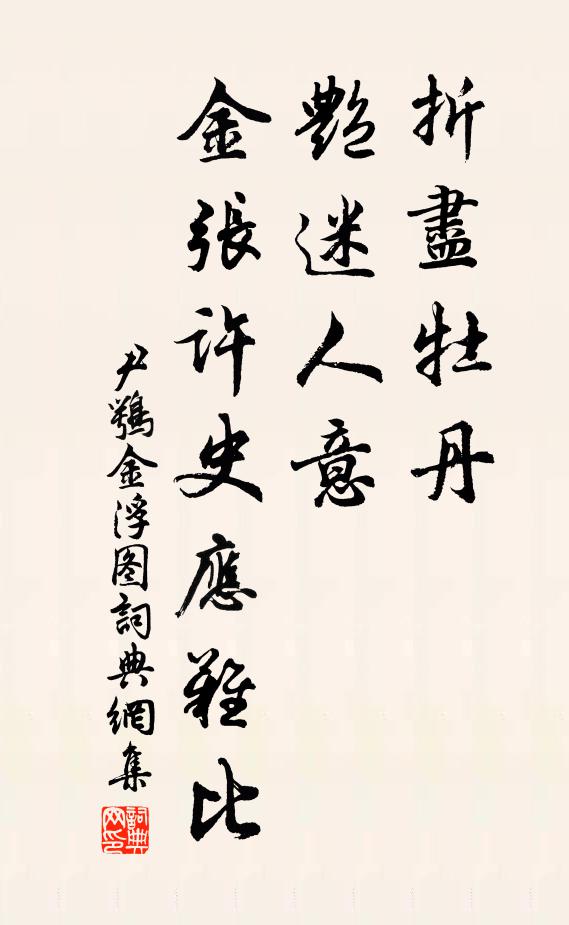 折盡牡丹
艷迷人意
金張許史應難比
尹鶚金浮图詞典網集
詞典網印